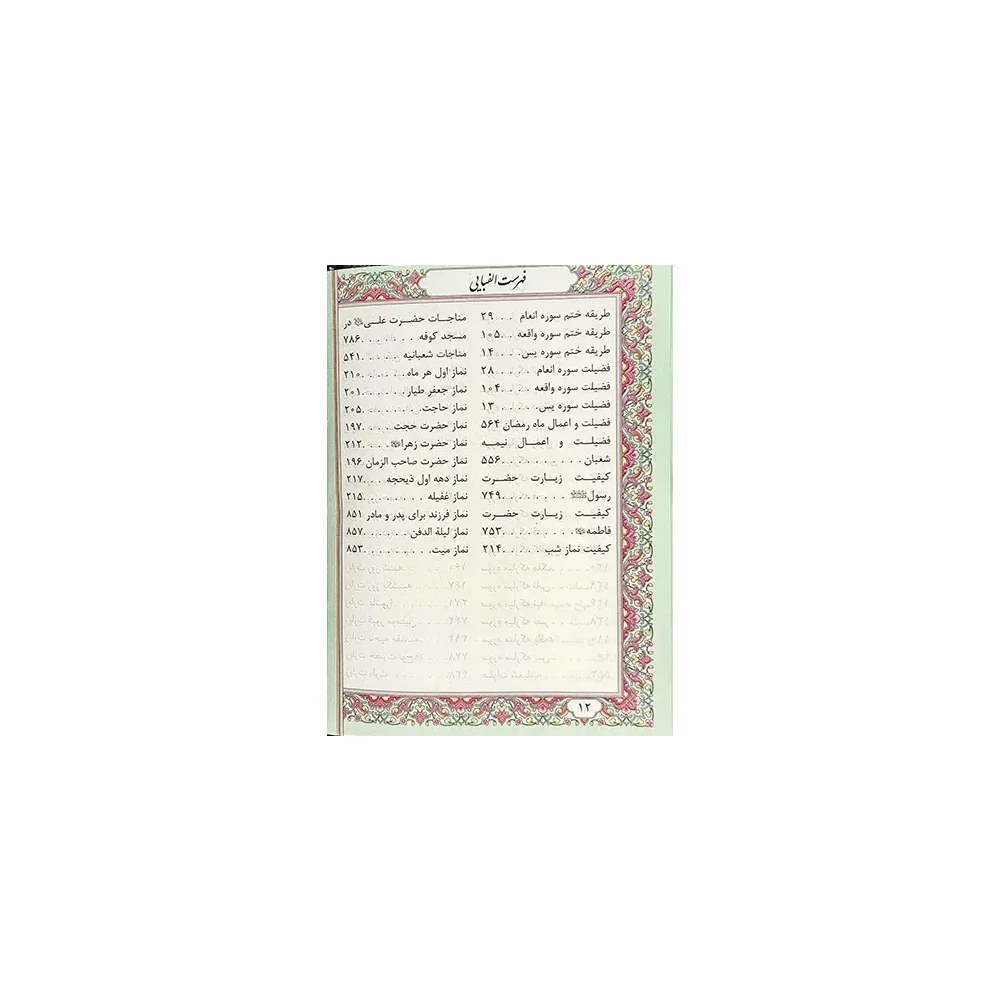 فهرست الفبایی
طریقه ختم سوره انعام . . . ۲۹
طریقه ختم سوره واقعه . . . ۱۰۵
طریقه ختم سوره یس. . . . ۱۴
فضیلت سوره انعام . . . . . ۲۸
فضیلت سوره واقعه . . . . ۱۰۴
فضیلت سوره یس. . . . . . ۱۳
فضیلت و اعمال ماه رمضان ۵۶۴
فضیلت و اعمال نیمه
شعبان . . . . . . . . . . ۵۵۶
کیفیت زیارت حضرت
رسول ﷺ . . . . . . . . ۷۴۹
کیفیت زیارت حضرت
فاطمه . . . . . . . . . ۷۵۳
کیفیت نماز شب . . . . . ۲۱۴
مناجات حضرت علی در
مسجد کوفه . . . . . . . ۷۸۶
مناجات شعبانیه . . . . . ۵۴۱
نماز اول هر ماه . . . . . . ۲۱۰
نماز جعفر طیار . . . . . . ۲۰۱
نماز حاجت. . . . . . . . ۲۰۵
نماز حضرت حجت . . . . ۱۹۷
نماز حضرت زهرا . . . . ۲۱۲
نماز حضرت صاحب الزمان ۱۹۶
نماز دهه اول ذیحجه . . . ۲۱۷
نماز غفیله . . . . . . . . ۲۱۵
نماز فرزند برای پدر و مادر ۸۵۱
نماز لیلة الدفن . . . . . . ۸۵۷
نماز میت. . . . . . . . . ۸۵۳
۱۲